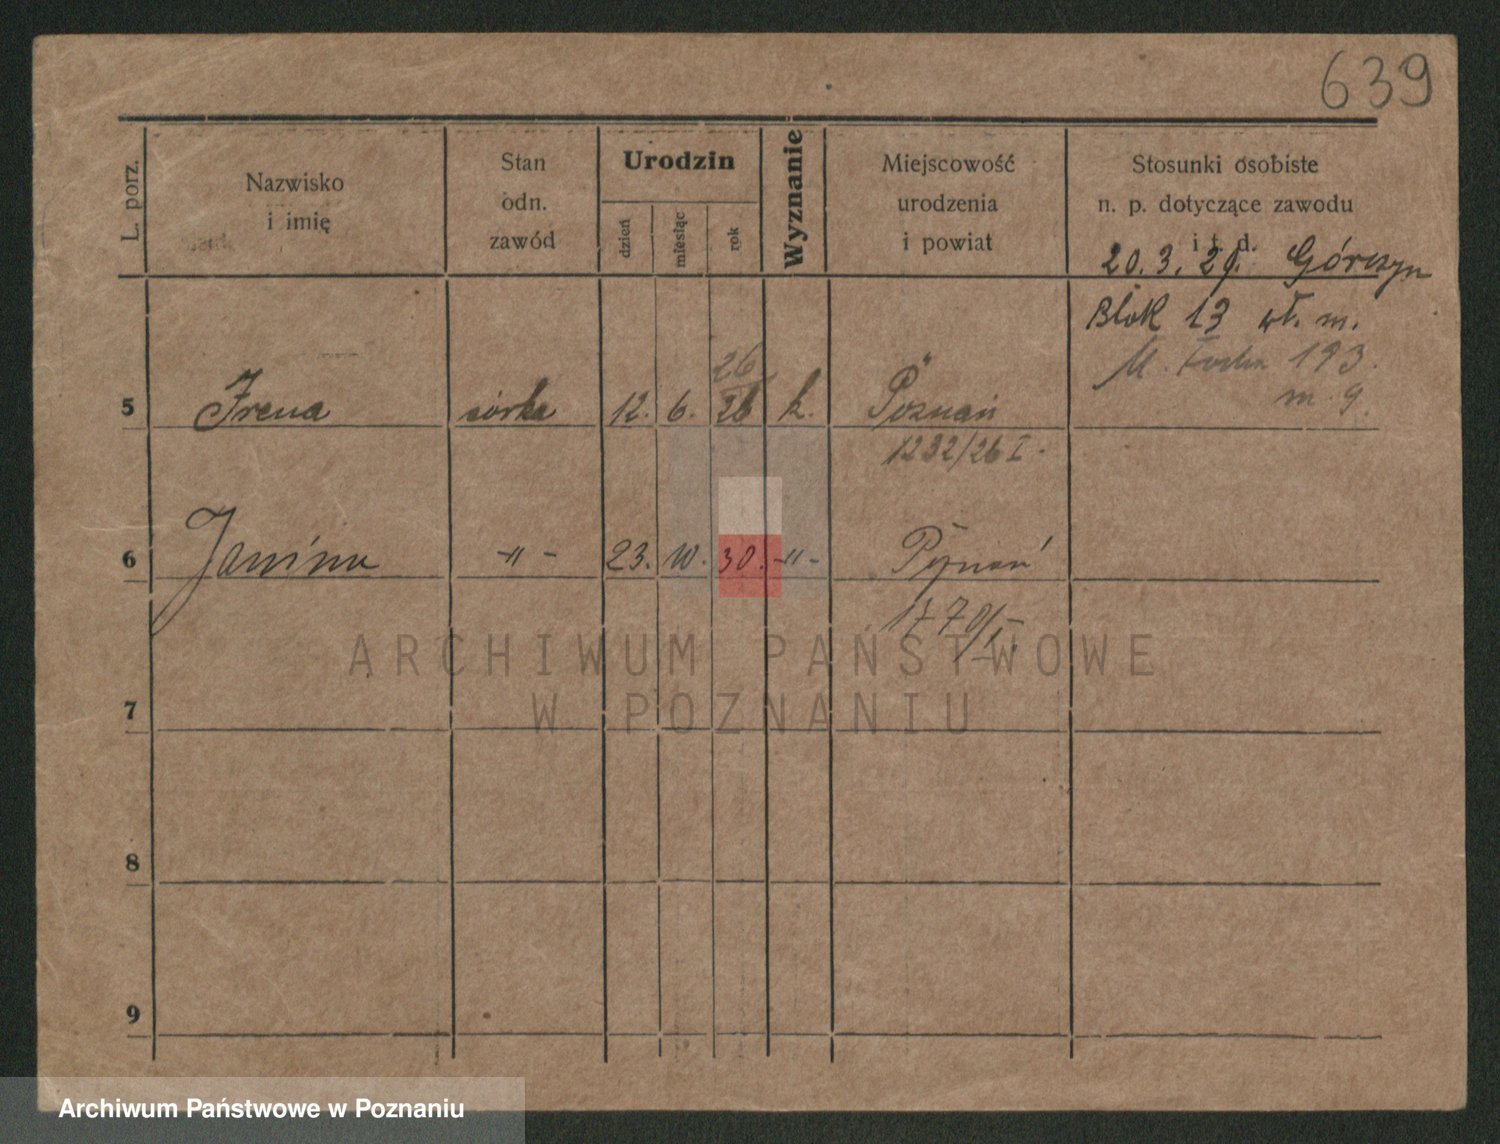 639
L. porz.
Nazwisko
i imię
Stan
odn.
zawód
Urodzin
dzień
miesiąc
rok
Wyznanie
Miejscowość
urodzenia
i powiat
Stosunki osobiste
n. p. dotyczące zawodu
i t. d.
20. 3. 29. Górczyn
Blok 13 wł. m.
M. Focha 193.
m. 9.
26
5 Irena córka 12. 6. 26 k. Poznań
1232/26 I.
6 Janina -"- 23. 30. -"- Poznań
ARCHIWUM PAŃSTWOWE
W POZNANIU
7
8
9
Archiwum Państwowe w Poznaniu